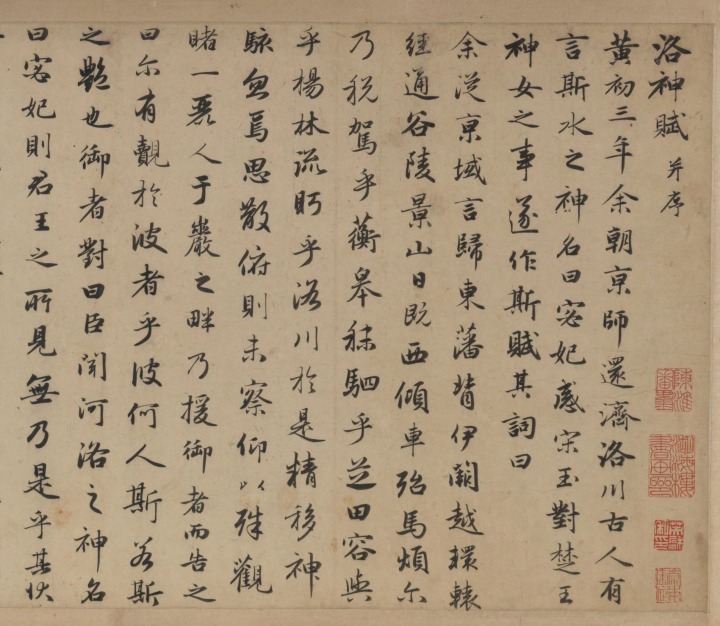 洛神賦 并序
黃初三年余朝京師還濟洛川古人有
言斯水之神名曰宓妃感宋玉對楚王
神女之事遂作斯賦其詞曰
余從京域言歸東藩背伊闕越轘轅
經通谷陵景山日既西傾車殆馬煩尔
乃稅駕乎蘅皋秣駟乎芝田容與
乎楊林流眄乎洛川於是精移神
駭忽焉思散俯則未察仰以殊觀
睹一麗人于巖之畔乃援御者而告之
曰尔有覿於彼者乎彼何人斯若斯
之艷也御者對曰臣聞河洛之神名
曰宓妃則君王之所見無乃是乎其狀